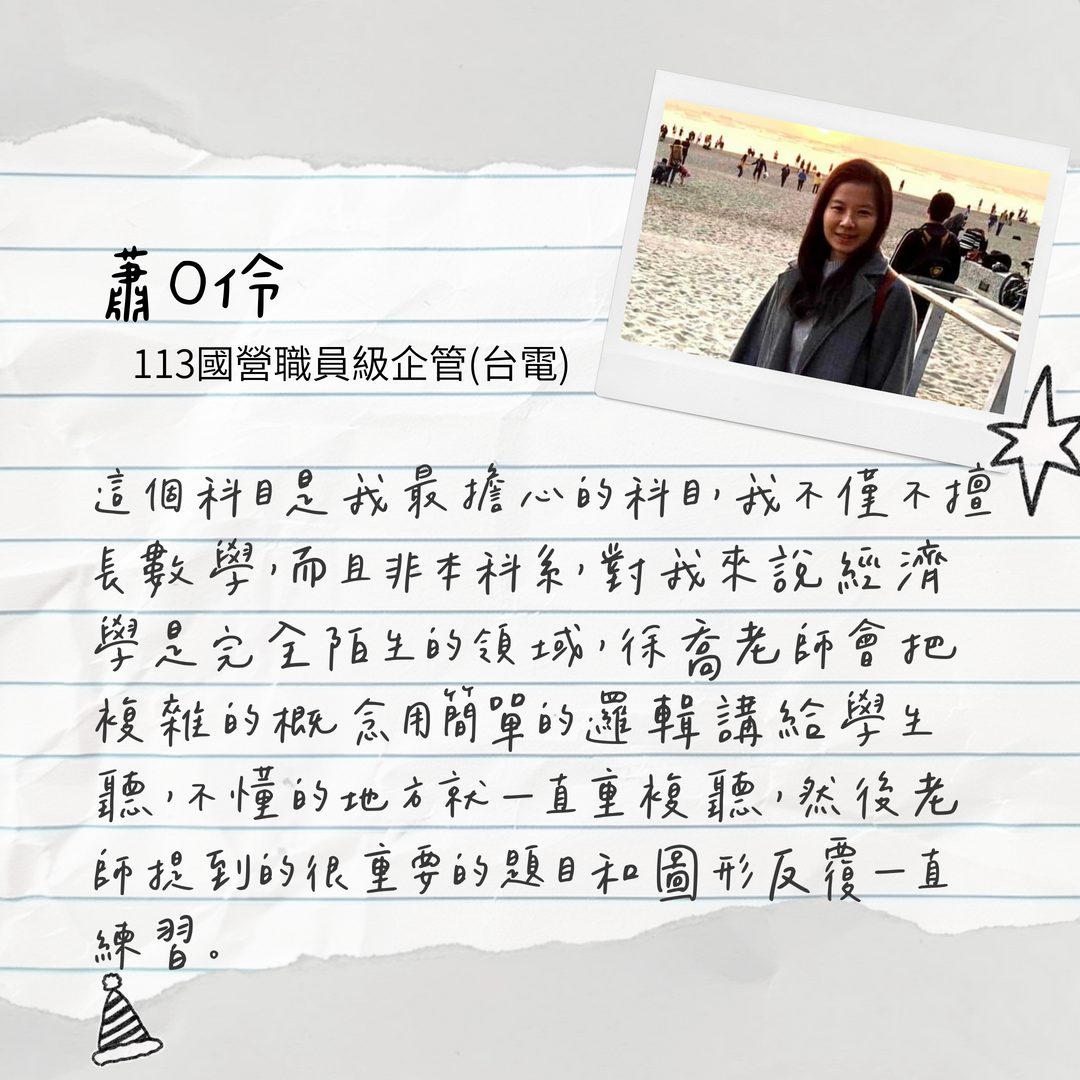 蕭O伶
113國營職員級企管(台電)
這個科目是我最擔心的科目，我不僅不擅
長數學，而且非本科系，對我來說經濟
學是完全陌生的領域，徐喬老師會把
複雜的概念用簡單的邏輯講給學生
聽，不懂的地方就一直重複聽，然後老
師提到的很重要的題目和圖形反覆一直
練習。